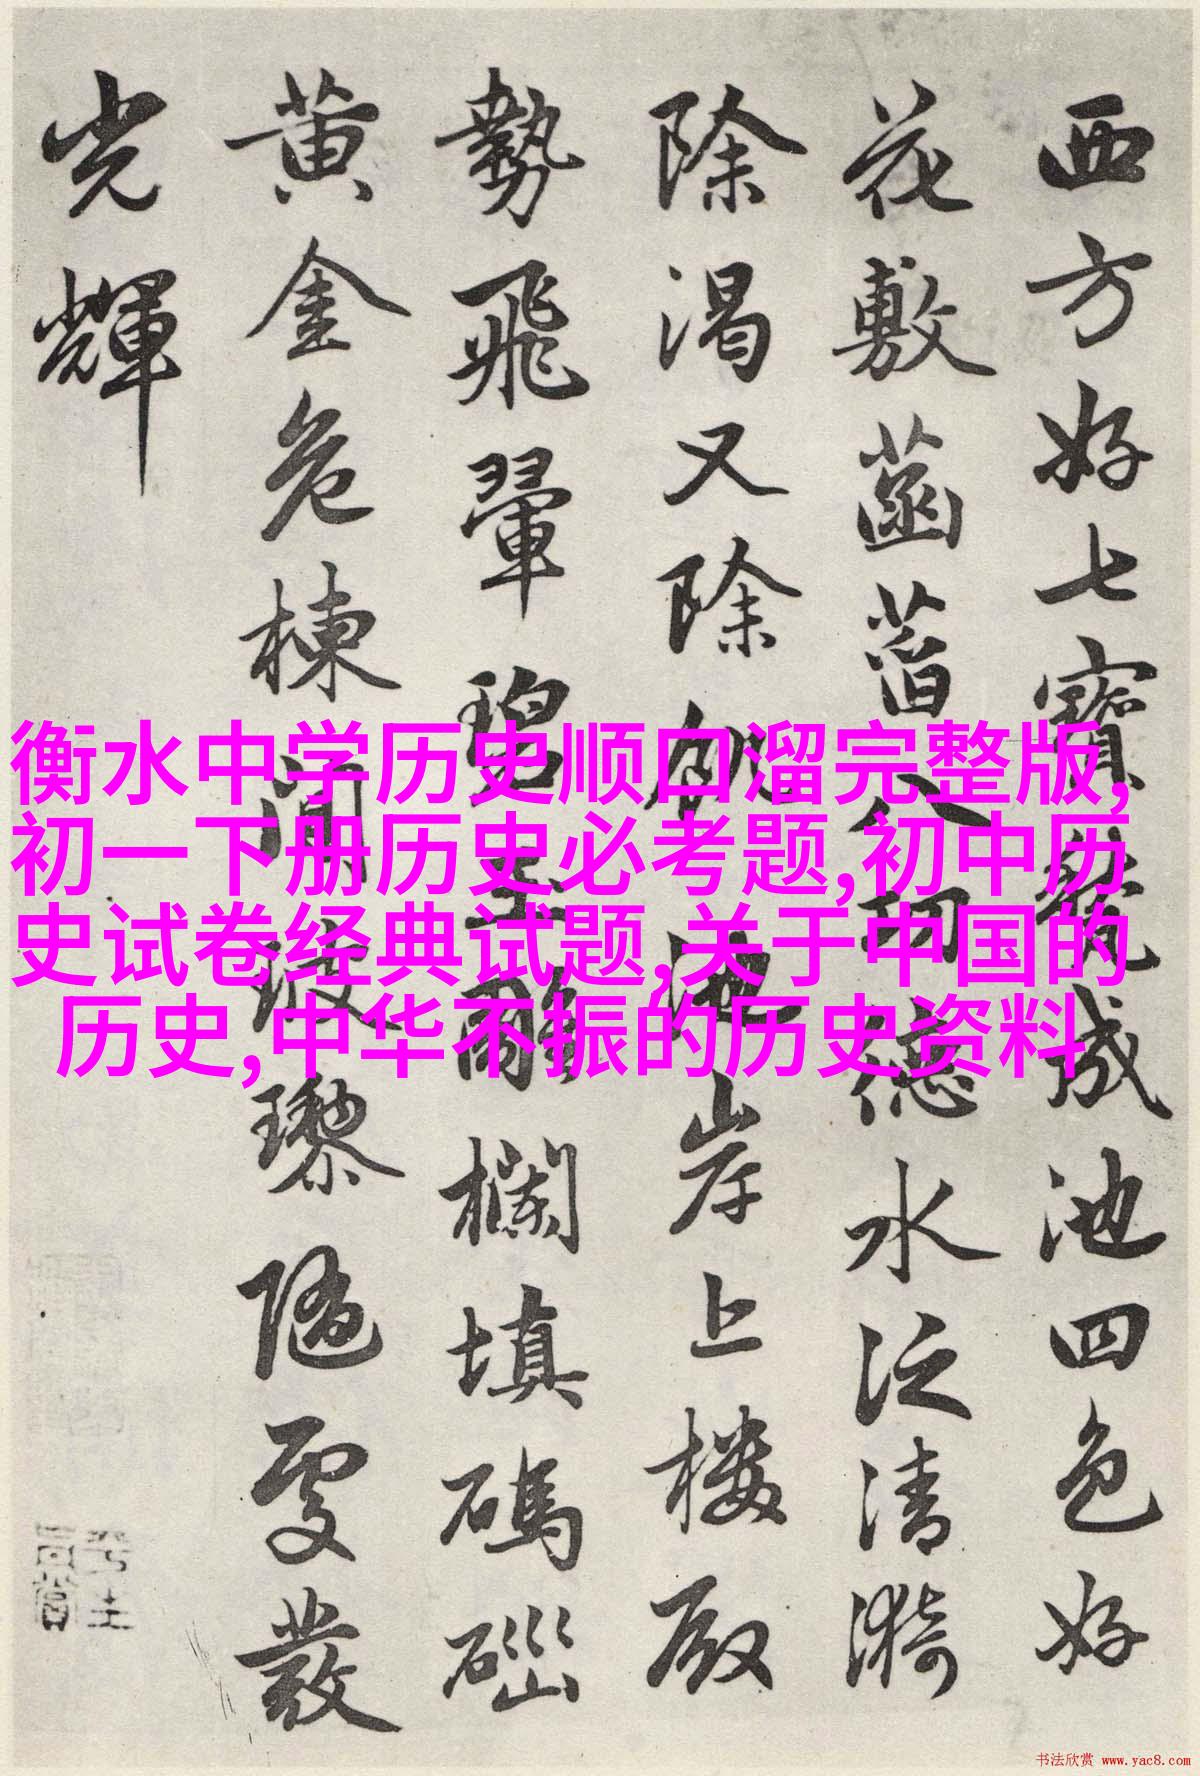 西方好七寶甃成池四色好
花敷菡萏八功德水泛清漪
除渴又除飢池岸上樓殿
勢飛翬碧玉雕欄填碼磂
黃金危棟間玻瓈隨處發
光輝
衡水中学历史顺口溜完整版,
初一下册历史必考题,初中历
史试卷经典试题,关于中国的
历史,中华不振的历史资料
书法欣赏 www.yac8.com